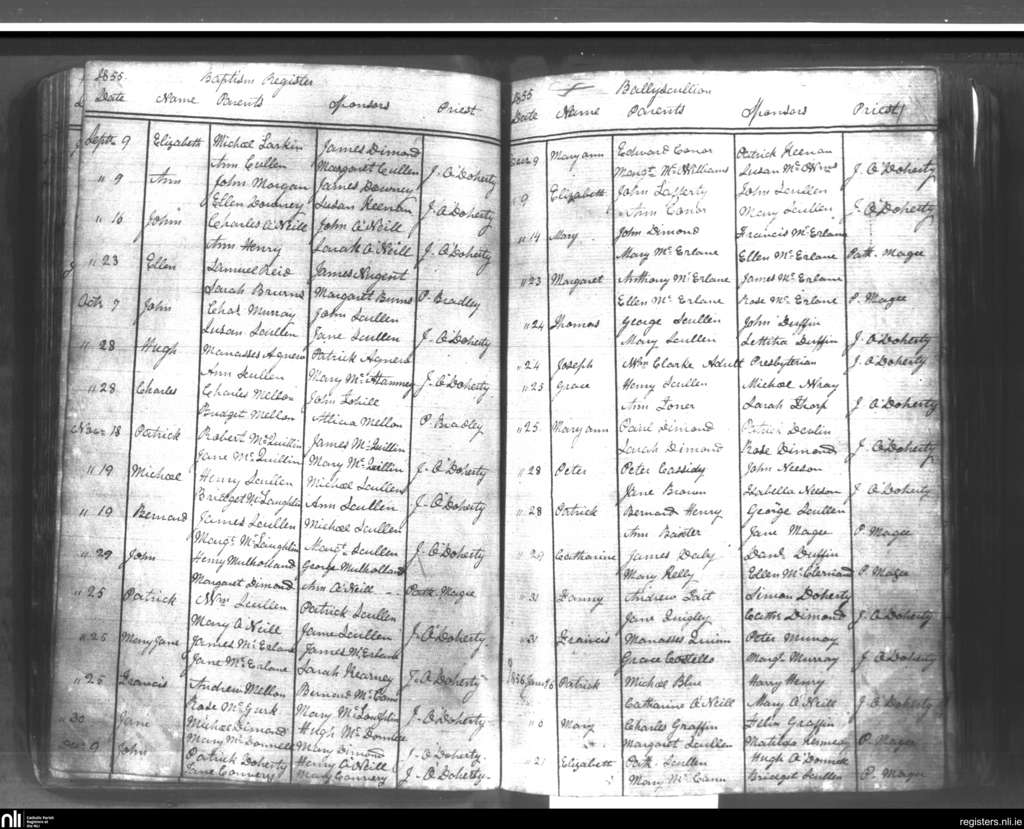 1855 Baptism Register
Date Name Parents Sponsors Priest
Septr 9 Elizabeth Michael Larkin James Dimond
Ann Cullen Margaret Cullen J. O'Doherty
" 9 Ann John Morgan James Downey
Ellen Downey Susan Keenan J. O'Doherty
" 16 John Charles O'Neill John O'Neill
Ann Henry Sarah O'Neill J. O'Doherty
" 23 Ellen Samuel Reid James Nugent
Sarah Margaret Burns P. Bradley
Octr 7 John Chas Murray John Scullen
Susan Scullen Jane Scullen J. O'Doherty
" 28 Hugh Manasses Agnew Patrick Agnew
Ann Scullen Mary J. O'Doherty
" 28 Charles Charles Mellon John
Bridget Mellon Mellon P. Bradley
Novr 18 Patrick Robert McQuillin James McQuillin
Jane McQuillin Mary McQuillen J. O'Doherty
" 19 Michael Henry Scullen Michael Scullen
Bridget McLaughlin Ann Scullen J. O'Doherty
" 19 Bernard James Scullen Michael Scullen
Margt McLaughlin Margt Scullen J. O'Doherty
" 29 John Henry Mulholland George Mulholland
Margaret Dimond Ann O'Neill Patk Magee
" 25 Patrick Wm Scullen Patrick Scullen
Mary O'Neill Jane Scullen J. O'Doherty
" 25 Mary Jane James McErlane James McErlane
Jane McErlane Sarah Kearney J. O'Doherty
" 25 Francis Andrew Mellon Bernard McCann
Rose McGurk Mary McLaughlin J. O'Doherty
" 30 Jane Michael Dimond Hugh McDonnell
Mary McDonnell Mary Dimond J. O'Doherty
Decr 9 John Patrick Doherty Henry O'Neill
Jane Connery Mary Connery J. O'Doherty
1855 Ballyscullion
Date Name Parents Sponsors Priest
Decr 9 Mary ann Edward Conor Patrick Keenan
Margt McWilliams Susan J. O'Doherty
" 9 Elizabeth John Lafferty John Scullen
Ann Conor Mary Scullen J. O'Doherty
" 14 Mary John Dimond Francis McErlane
Mary McErlane Ellen McErlane Patk. Magee
" 23 Margaret Anthony McErlane James McErlane
Ellen McErlane Rose McErlane P. Magee
" 24 Thomas George Scullen John Duffin
Mary Scullen Lettitia Duffin J. O'Doherty
" 24 Joseph Wm Clarke Adult Presbyterian J. O'Doherty
" 25 Grace Henry Scullen Michael Wray
Ann Toner Sarah Thorp J. O'Doherty
" 25 Mary ann Paul Dimond Patrick Devlin
Sarah Dimond Rose Dimond J. O'Doherty
" 28 Peter Peter Cassidy John Neeson
Jane Brown Isabella Neeson J. O'Doherty
" 28 Patrick Bernard Henry George Scullen
Ann Baxter Jane Magee P. Magee
" 29 Catharine James Daly Danl Duffin
Mary Kelly Ellen P. Magee
" 31 Andrew Tait Simon Doherty
Jane Quigley Cathe Dimond J. O'Doherty
" 31 Francis Manasses Quinn Peter Murray
Grace Costello Margt Murray J. O'Doherty
1856 Jany 6 Patrick Michael Blue Harry Henry
Catharine O'Neill Mary O'Neill J. O'Doherty
Mary Charles Graffin Felix Graffin
Margaret Scullen Matilda Kennedy P. Magee
" 21 Elizabeth Patk Scullen Hugh O'Donnell
Mary McCann Bridget Scullen P. Magee
nli Catholic Parish Registers at the NLI
registers.nli.ie